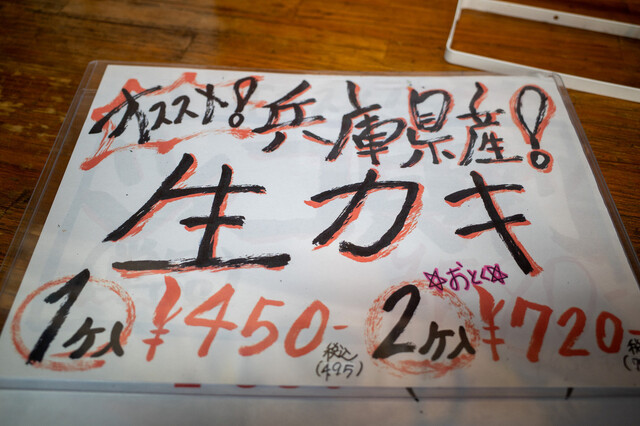 オススメ! 兵庫県産!
生カキ
☆おとく☆
1ケ入 ¥450- 2ケ入 ¥720-
税込
(495)